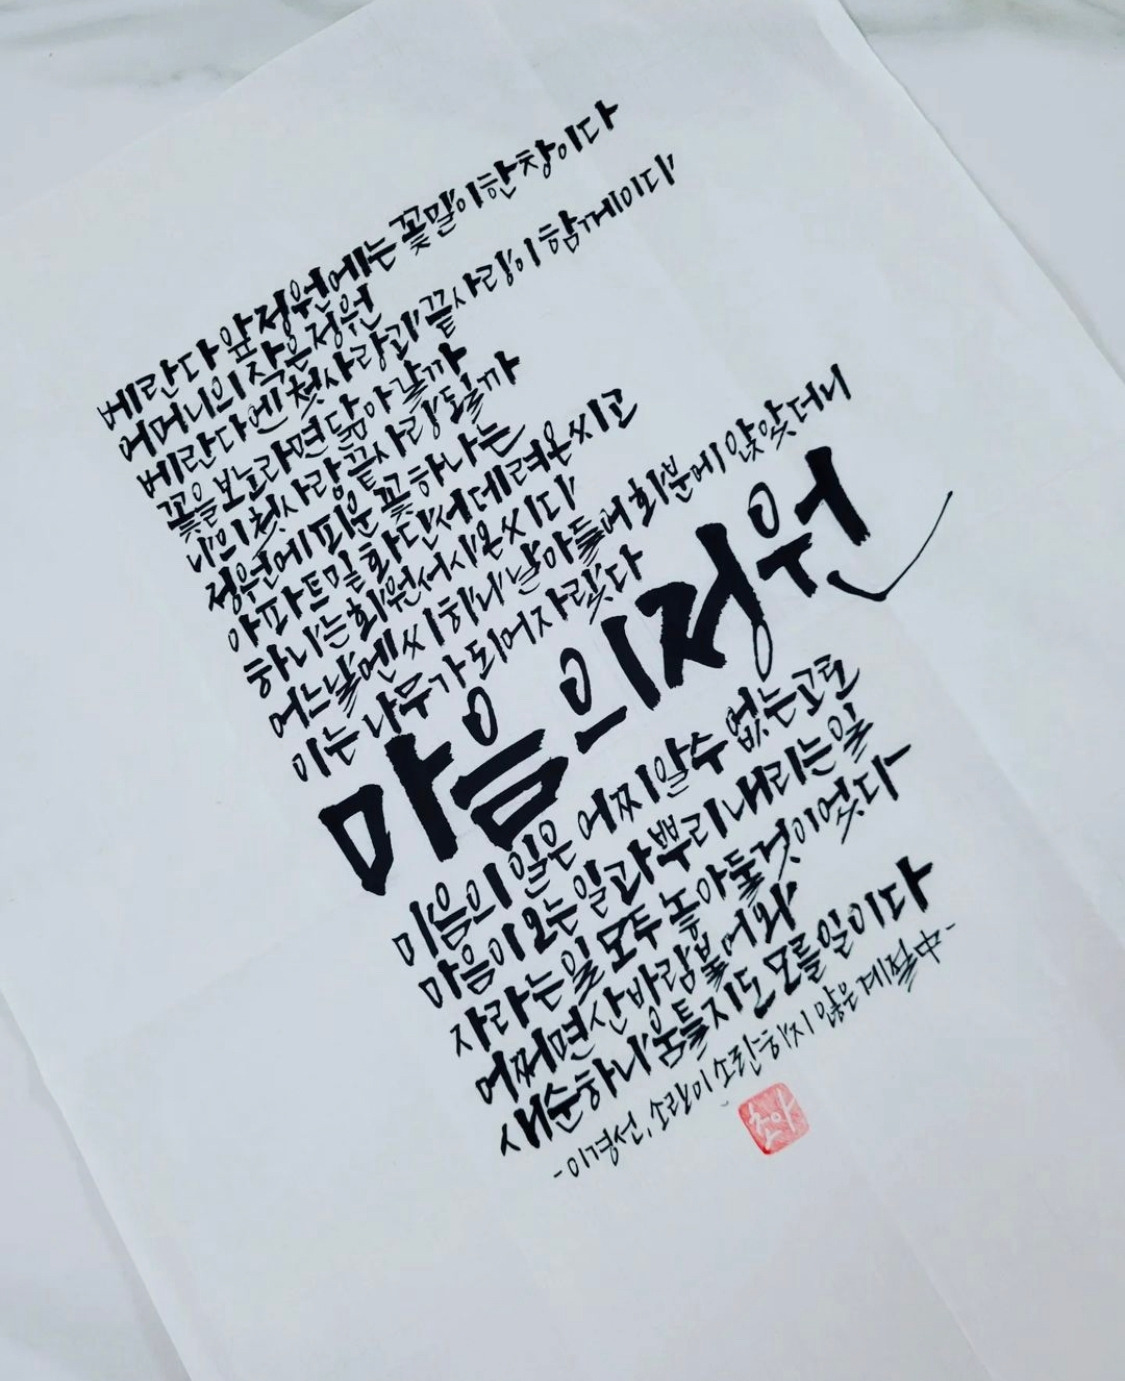 베란다 앞 정원에는 꽃말이 한창이다
어머니의 작은 정원
베란다엔 첫사랑과 끝사랑이 함께이다
꽃을 보노라면 닮아 갈까
나의 첫사랑 끝사랑 도 될까
정원에 피운 꽃 하나는
아파트 밑 화단서 데려온 씨고
하나는 회원서 사온 씨다
어느 날엔 씨 하나 날아들어 화분에 앉았더니
이는 나무가 되어 자랐다
마음의 정원
마음의 일은 어찌 알 수 없는고로
마음이 오는 일과 뿌리 내리는 일
자라는 일 모두 놓아둘 것이었다
어쩌면 산바람 불어와
새순 하나 움틀지도 모를 일이다
-이경선, 소란이 소란하지 않은 계절 中-